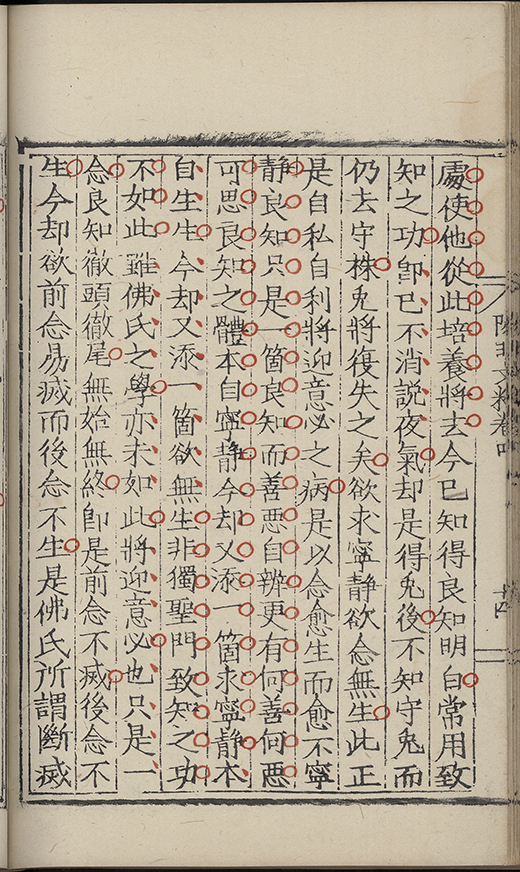 處使他從此培養將去今已知得良知明白常用致
知之功卽已不消説夜氣却是得兎後不知守兎而
仍去守株兎將復失之矣欲求寧静欲念無生此正
是自私自利將迎意必之病是以念愈生而愈不寧
静良知只是一箇良知而善惡自辨更有何善何惡
可思良知之體本自寧静今却又添一箇求寧静本
自生生今却又添一箇欲無生非獨聖門致知之功
不如此雖佛氏之學亦未如此將迎意必也只是一
念良知徹頭徹尾無始無終卽是前念不滅後念不
生今却欲前念易滅而後念不生是佛氏所謂斷滅